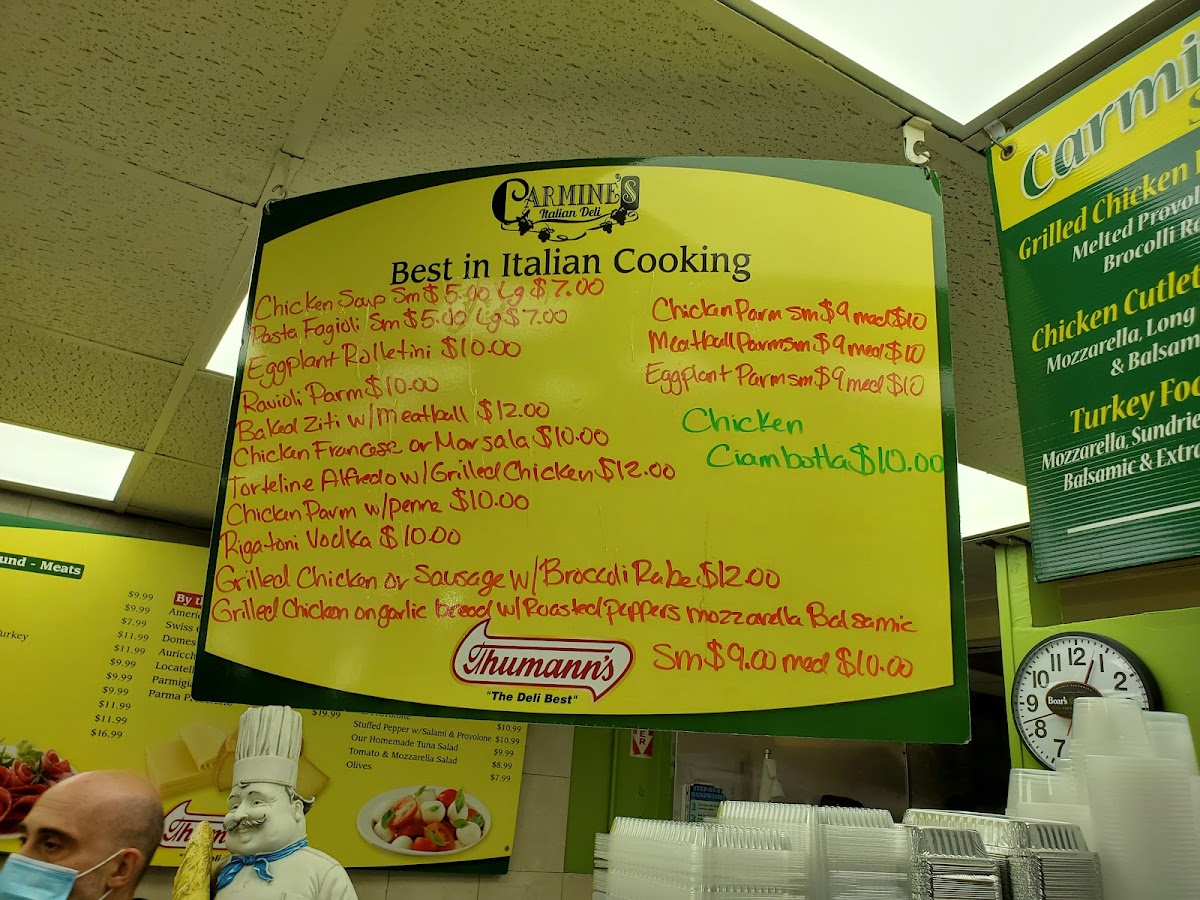 CARMINE'S
Italian Deli
Best in Italian Cooking
Chicken Soup Sm $5.00 Lg $7.00
Pasta Fagioli Sm $5.00 Lg $7.00
Eggplant Rolletini $10.00
Ravioli Parm $10.00
Baked Ziti w/Meatball $12.00
Chicken Francase or Marsala $10.00
Torteline Alfredo w/Grilled Chicken $12.00
Chicken Parm w/penne $10.00
Rigatoni Vodka $10.00
Grilled Chicken or Sausage w/Broccoli Rabe $12.00
Grilled Chicken on garlic bread w/Roasted peppers mozzarella Balsamic
Sm $9.00 med $10.00
Chicken Parm sm $9 med $10
Meatball Parm sm $9 med $10
Eggplant Parm sm $9 med $10
Chicken
Ciambotta $10.00
Thumann's
"The Deli Best"
Carmi
Grilled Chicken
Melted Provol
Brocolli R
Chicken Cutlet
Mozzarella, Long
& Balsam
Turkey Foc
Mozzarella, Sundrie
Balsamic & Extra
und - Meats
urkey
$9.99
$9.99
$7.99
$11.99
$11.99
$9.99
$9.99
$11.99
$11.99
$16.99
By
Ameri
Swiss
Domes
Auricch
Locatell
Parmigi
Parma P
$19.99
Stuffed Pepper w/Salami & Provolone
Our Homemade Tuna Salad
Tomato & Mozzarella Salad
Olives
$10.99
$10.99
$9.99
$8.99
$7.99
Thum
11 12 1
10 2
9 Boar's
8
7